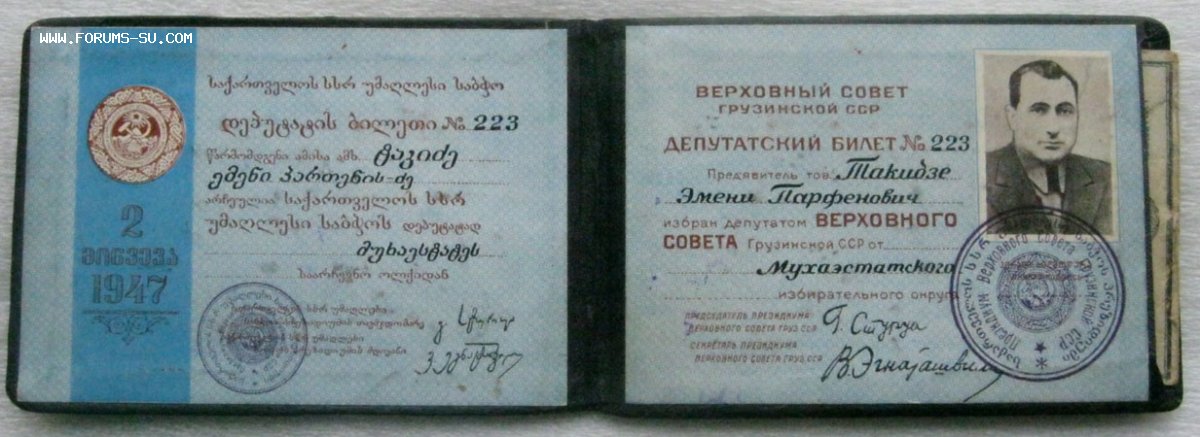 www.forums-su.com
2
მოწვევა
1947
საქართველოს სსრ უმაღლესი საბჭო
დეპუტატის ბილეთი № 223
წარმომდგენი ამისა ამხ. ტაკიძე
ემენი პართენის-ძე
არჩეულია საქართველოს სსრ
უმაღლესი საბჭოს დეპუტატად
მუხაესტატეს
საარჩევნო ოლქიდან
ВЕРХОВНЫЙ СОВЕТ
ГРУЗИНСКОЙ ССР
ДЕПУТАТСКИЙ БИЛЕТ № 223
Предявитель тов. Такидзе
Эмени Парфенович
избран депутатом ВЕРХОВНОГО
СОВЕТА Грузинской ССР от
Мухаэстатского
избирательного округа
ПРЕДСЕДАТЕЛЬ ПРЕЗИДИУМА
ВЕРХОВНОГО СОВЕТА ГРУЗ.ССР
Г. Стуруа
СЕКРЕТАРЬ ПРЕЗИДИУМА
ВЕРХОВНОГО СОВЕТА ГРУЗ.ССР
В. Эгнаташвили
Президиум Верховного Совета Грузинской ССР